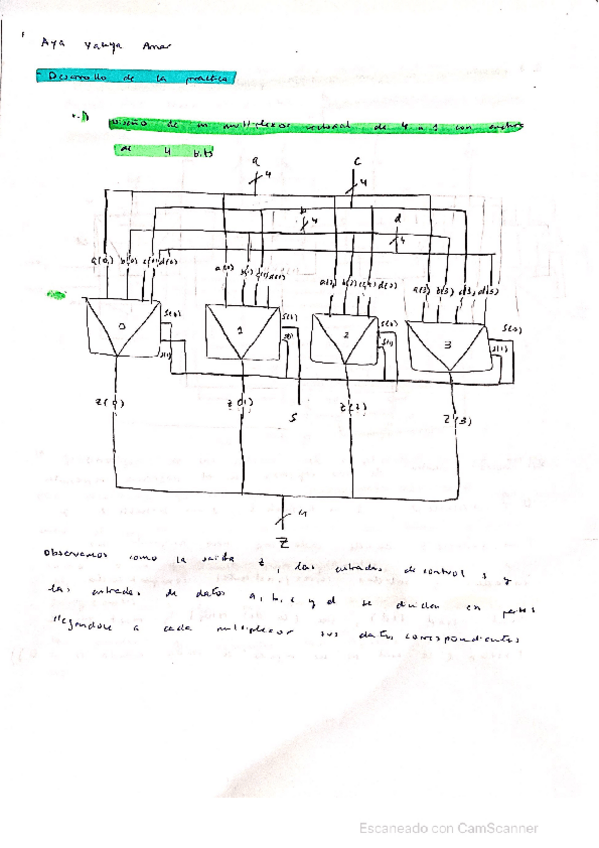 Aya Yahya Amar
Desarrollo de la practica
Diseño de un multiplexor vectorial de 4 a 1 con ancho
de 4 bits
a c
4 4
b d
4 4
a(0) b(0) c(0) d(0) a(1) b(1) c(1) d(1) a(2) b(2) c(2) d(2) a(3) b(3) c(3) d(3)
0 1 2 3
S(0) S(1) S(0) S(1) S(0) S(1) S(0) S(1)
Z(0) Z(1) S Z(2) Z(3)
4
Z
observamos como la salida z, las entradas de control s y
las entradas de datos a, b, c y d se dividen en partes
llegandole a cada multiplexor sus datos correspondientes
Escaneado con CamScanner